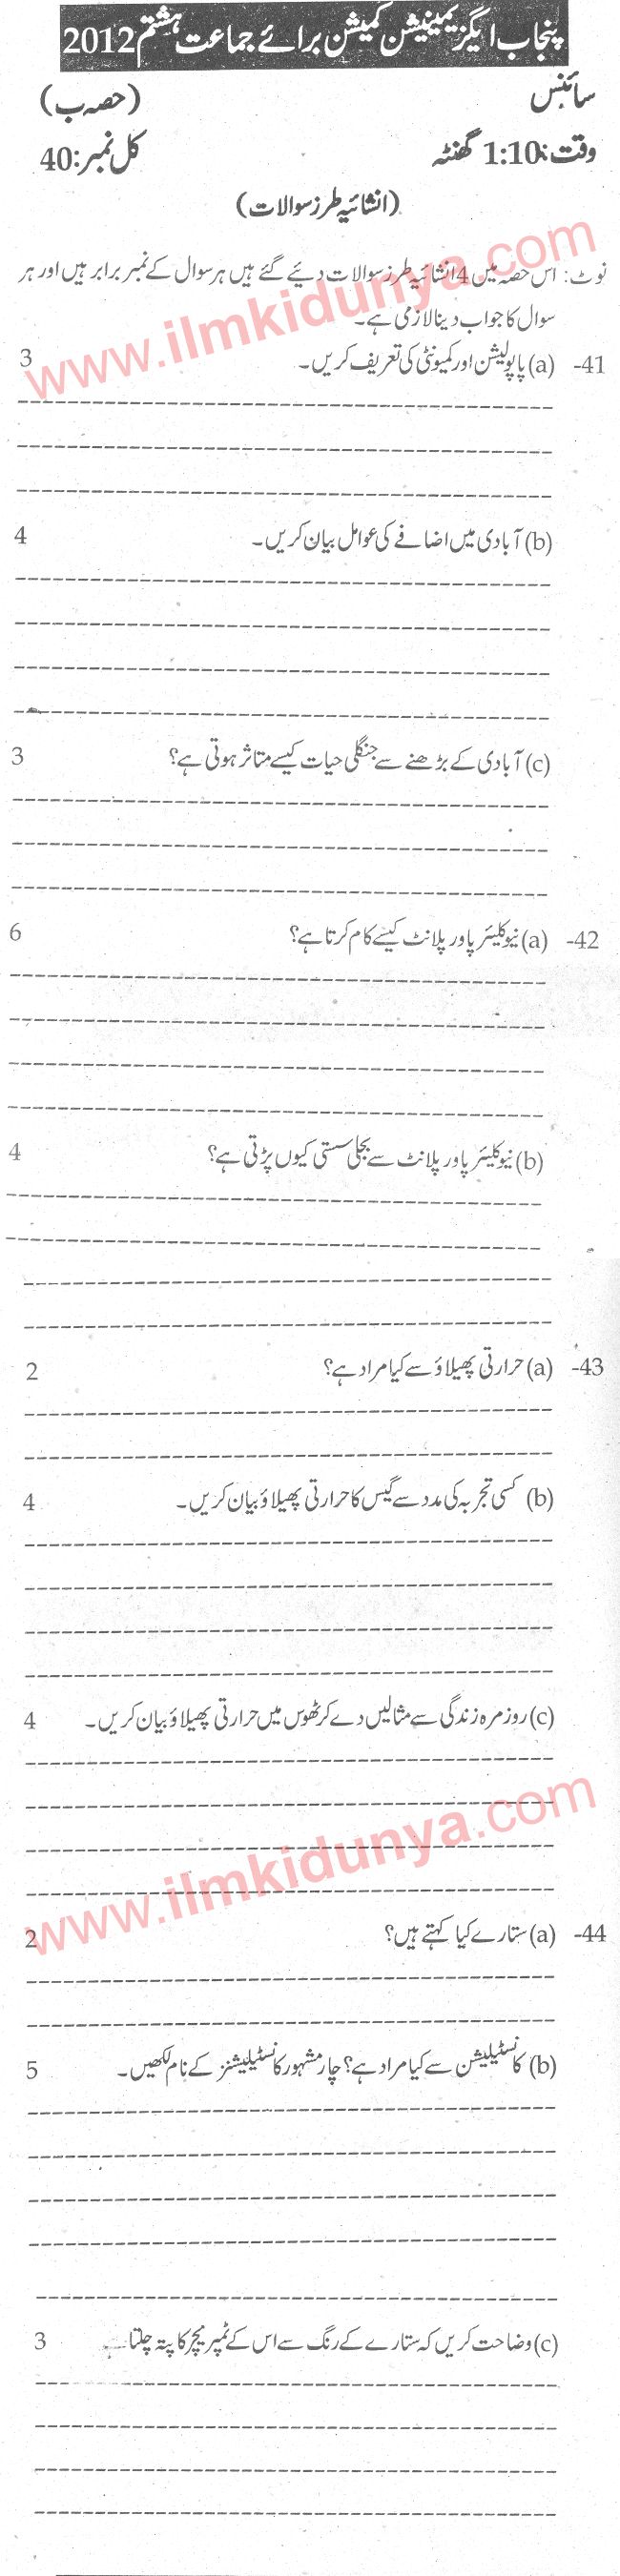 پنجاب ایگزیمینیشن کمیشن برائے جماعت ہشتم 2012
سائنس (حصہ ب)
وقت: 1:10 گھنٹہ کل نمبر: 40
(انشائیہ طرز سوالات)
نوٹ: اس حصہ میں 4 انشائیہ طرز سوالات دیئے گئے ہیں ہر سوال کے نمبر برابر ہیں اور ہر
سوال کا جواب دینا لازمی ہے۔
www.ilmkidunya.com
41- (a) پاپولیشن اور کمیونٹی کی تعریف کریں۔ 3
(b) آبادی میں اضافے کی عوامل بیان کریں۔ 4
(c) آبادی کے بڑھنے سے جنگلی حیات کیسے متاثر ہوتی ہے؟ 3
42- (a) نیوکلیئر پاور پلانٹ کیسے کام کرتا ہے؟ 6
(b) نیوکلیئر پاور پلانٹ سے بجلی سستی کیوں پڑتی ہے؟ 4
43- (a) حرارتی پھیلاؤ سے کیا مراد ہے؟ 2
(b) کسی تجربہ کی مدد سے گیس کا حرارتی پھیلاؤ بیان کریں۔ 4
(c) روزمرہ زندگی سے مثالیں دے کر ٹھوس میں حرارتی پھیلاؤ بیان کریں۔ 4
www.ilmkidunya.com
44- (a) ستارے کیا کہتے ہیں؟ 2
(b) کانسٹیلیشن سے کیا مراد ہے؟ چار مشہور کانسٹیلیشنز کے نام لکھیں۔ 5
(c) وضاحت کریں کہ ستارے کے رنگ سے اس کے ٹمپریچر کا پتہ چلتا 3